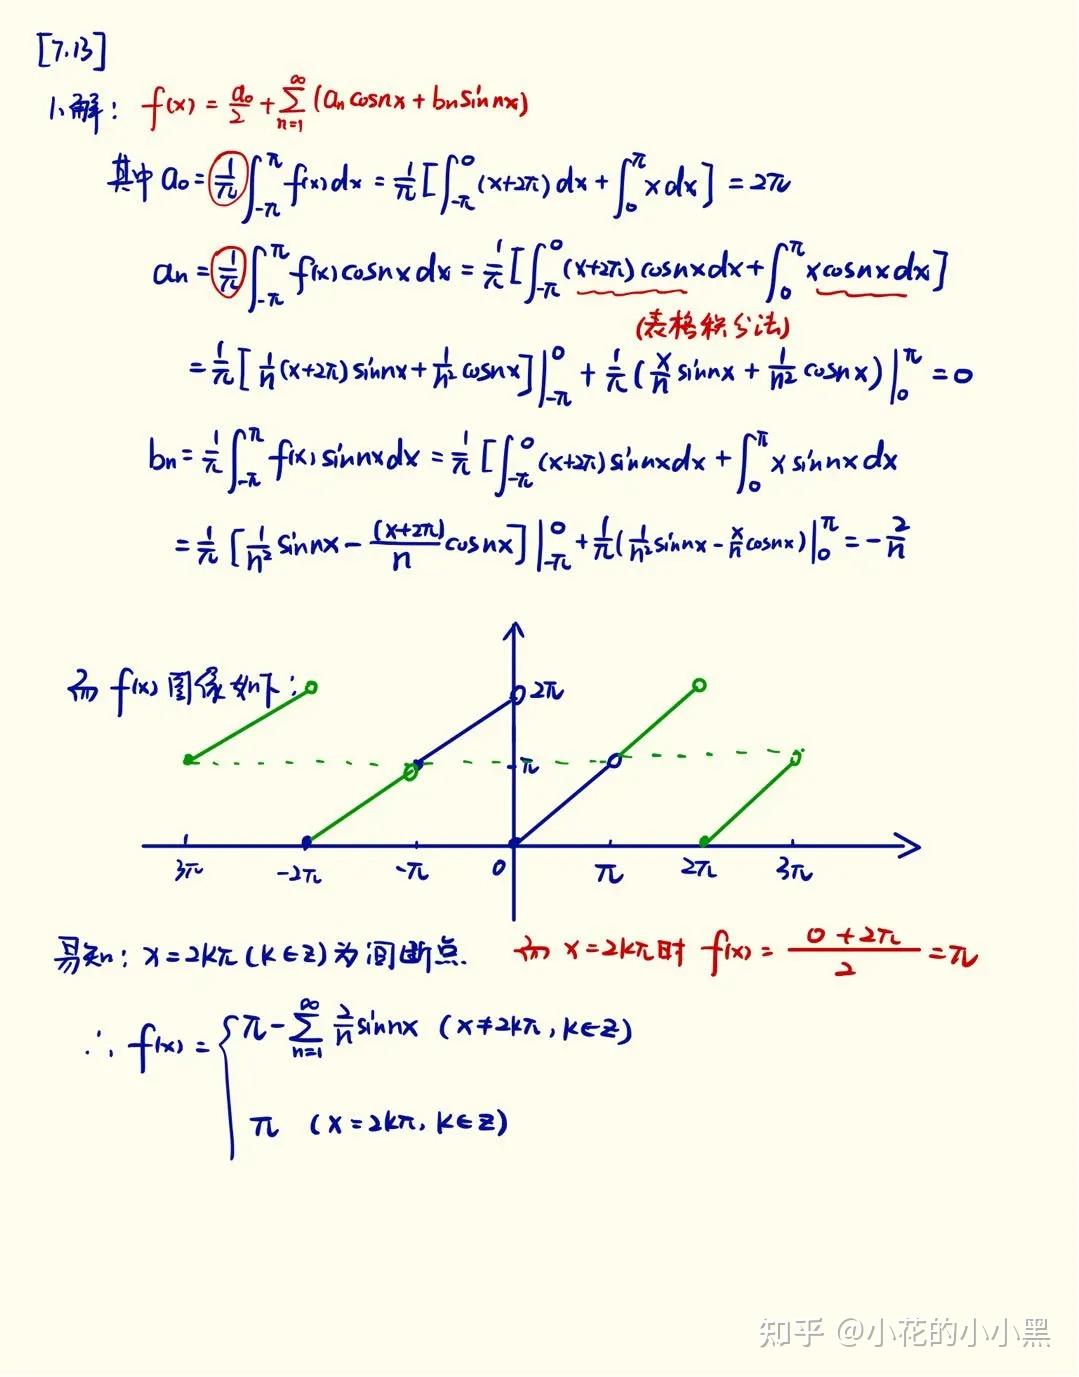 [7.13]
1、解： f(x) = a₀/2 + ∑_{n=1}^{∞} (aₙ cosnx + bₙ sinnx)
其中 a₀ = 1/π ∫_{-π}^{π} f(x)dx = 1/π [∫_{-π}^{0} (x+2π)dx + ∫_{0}^{π} x dx] = 2π
aₙ = 1/π ∫_{-π}^{π} f(x)cosnxdx = 1/π [∫_{-π}^{0} (x+2π)cosnxdx + ∫_{0}^{π} xcosnxdx]
(表格积分法)
= 1/π [1/n (x+2π)sinnx + 1/n² cosnx] |_{-π}^{0} + 1/π (x/n sinnx + 1/n² cosnx) |_{0}^{π} = 0
bₙ = 1/π ∫_{-π}^{π} f(x)sinnxdx = 1/π [∫_{-π}^{0} (x+2π)sinnxdx + ∫_{0}^{π} x sinnxdx
= 1/π [1/n² sinnx - (x+2π)/n cosnx] |_{-π}^{0} + 1/π (1/n² sinnx - x/n cosnx) |_{0}^{π} = -2/n
而 f(x) 图像如下：
2π
π
3π -2π -π 0 π 2π 3π
易知： x=2kπ (k∈Z) 为间断点. 而 x=2kπ时 f(x) = (0+2π)/2 = π
∴ f(x) = { π - ∑_{n=1}^{∞} 2/n sinnx (x≠2kπ, k∈Z)
π (x=2kπ, k∈Z)
知乎 @小花的小小黑